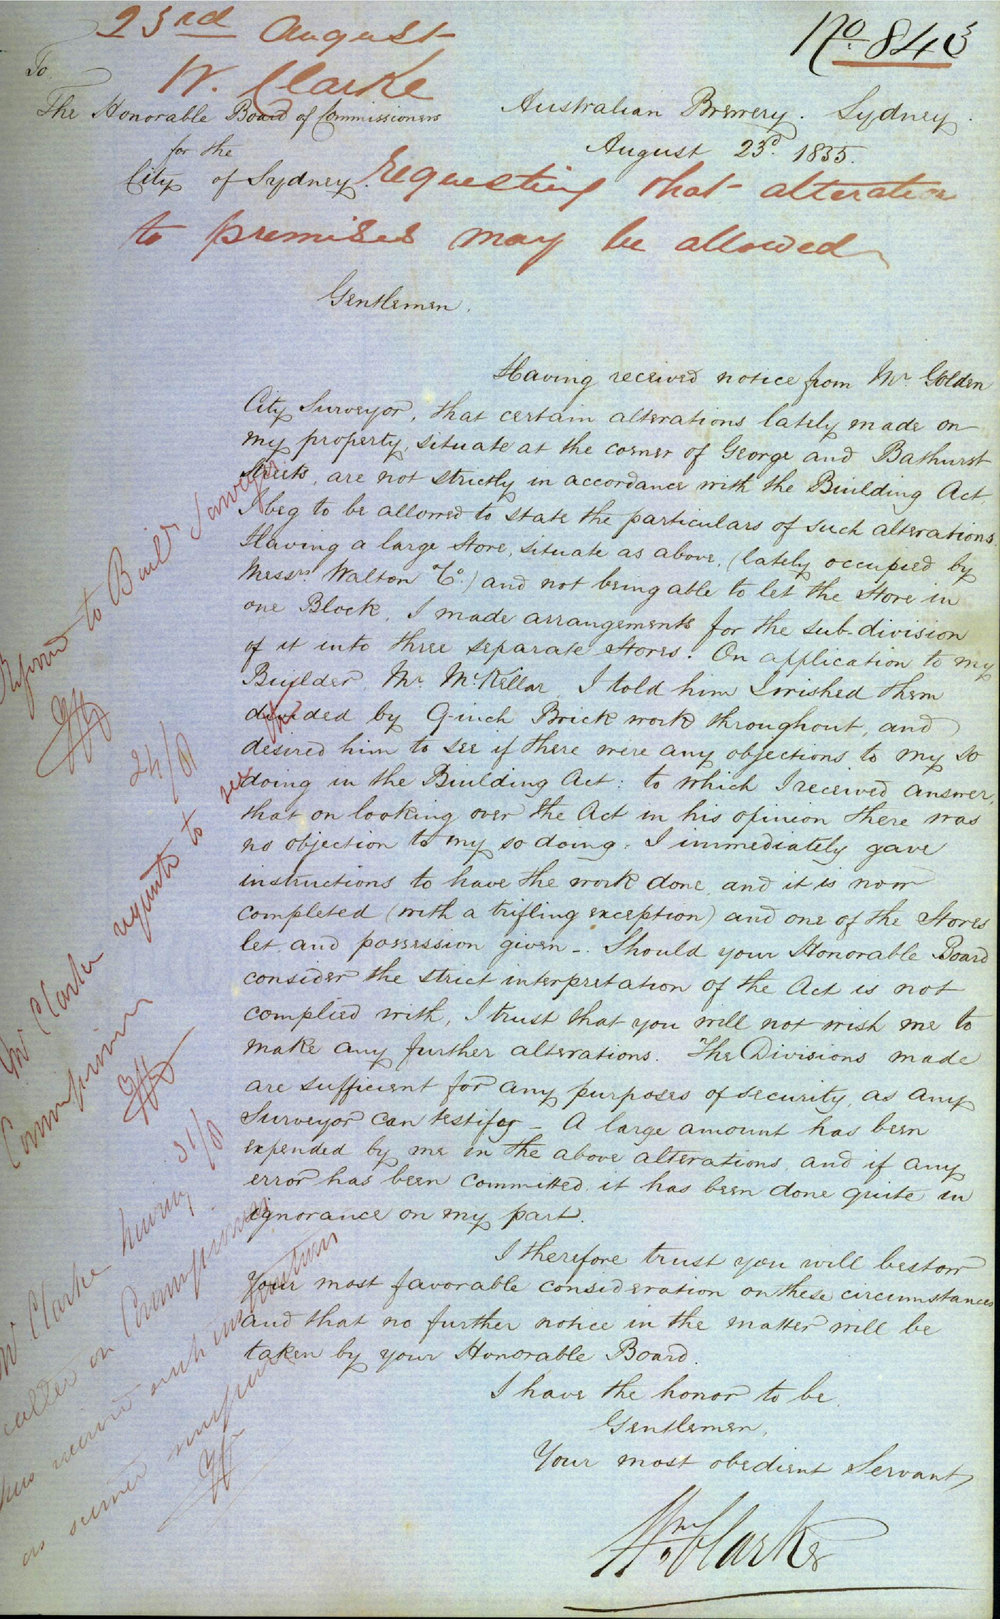 23rd August
No. 843
To
W. Clarke
The Honorable Board of Commissioners
for the
City of Sydney.
Australian Brewery. Sydney.
August 23d. 1855.
requesting that alteration
to premises may be allowed
Gentlemen,
Having received notice from Mr. Golden
City Surveyor, that certain alterations lately made on
my property, situate at the corner of George and Bathurst
Streets, are not strictly in accordance with the Building Act
I beg to be allowed to state the particulars of such alterations.
Having a large Store, situate as above, (lately occupied by
Messrs. Walton & Co.) and not being able to let the Store in
one Block, I made arrangements for the sub-division
of it into three separate Stores. On application to my
Builder, Mr. McKellar, I told him I wished them
divided by 9-inch Brick work throughout, and
desired him to see if there were any objections to my so
doing in the Building Act: to which I received answer,
that on looking over the Act in his opinion there was
no objection to my so doing. I immediately gave
instructions to have the work done, and it is now
completed (with a trifling exception) and one of the Stores
let and possession given -. Should your Honorable Board
consider the strict interpretation of the Act is not
complied with, I trust that you will not wish me to
make any further alterations. The Divisions made
are sufficient for any purposes of security, as any
Surveyor can testify - A large amount has been
expended by me in the above alterations, and if any
error has been committed, it has been done quite in
ignorance on my part.
I therefore trust you will bestow
Your most favorable consideration on these circumstances
and that no further notice in the matter will be
taken by your Honorable Board.
I have the honor to be,
Gentlemen,
Your most obedient Servant,
Wm. Clarke
Referred to Buildg Surveyor
24/8
Mr Clarke requests to see the
Commissioners
31/8
Mr Clarke having
called on Commissioners
has received such instructions
as seemed necessary